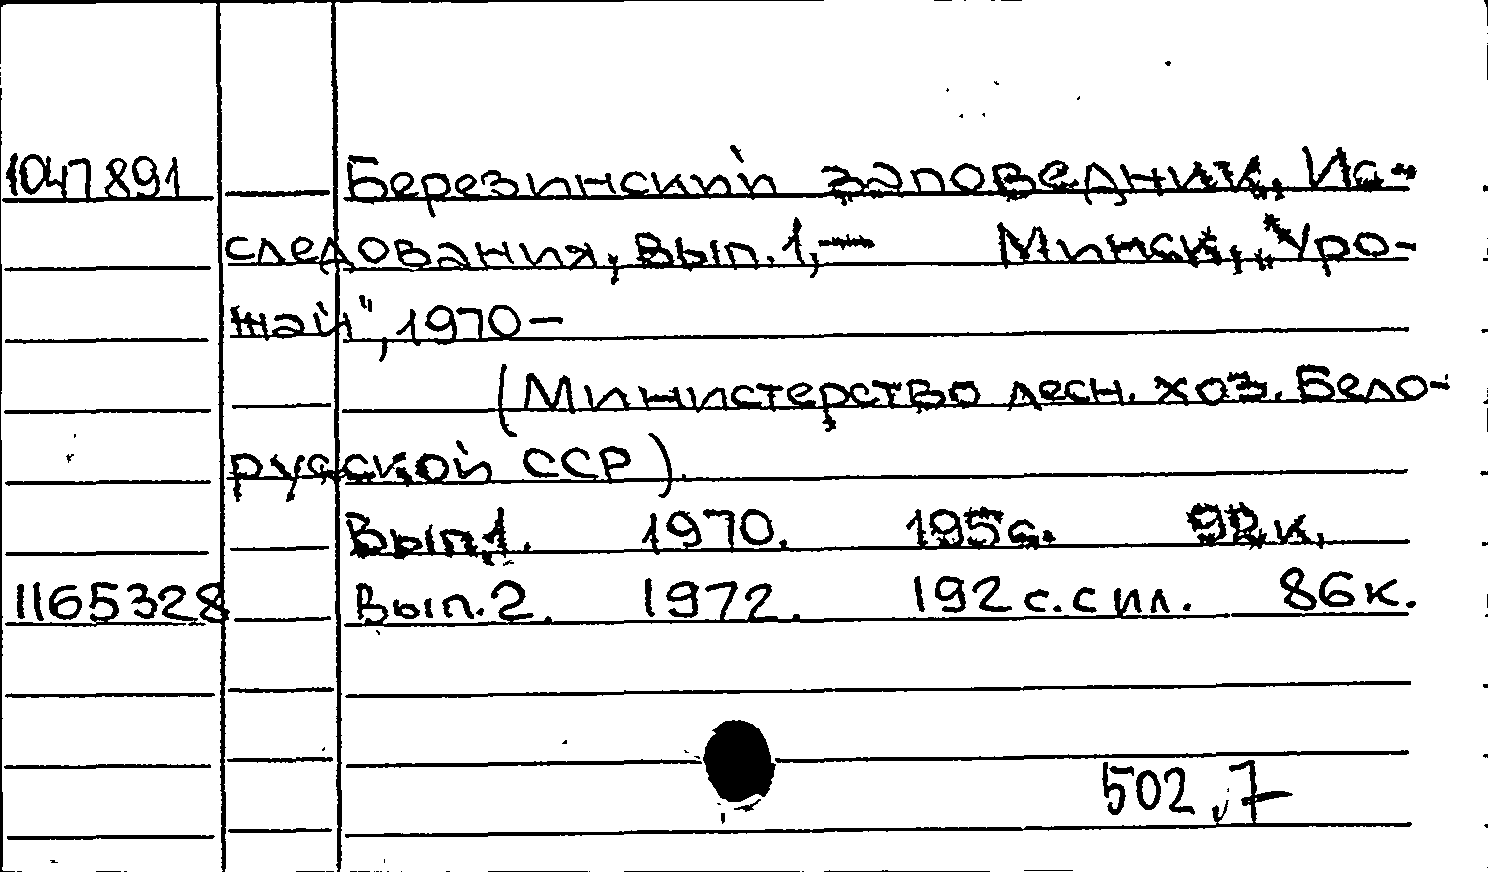 1047891 Березинский заповедник. Ис-
следования, Вып. 1,— Минск, „Уро-
жай", 1970—
(Министерство лесн. хоз. Бело-
русской ССР).
Вып.1. 1970. 195 с. 92 к.
1165328 Вып.2. 1972. 192 с. с ил. 86 к.
502,7